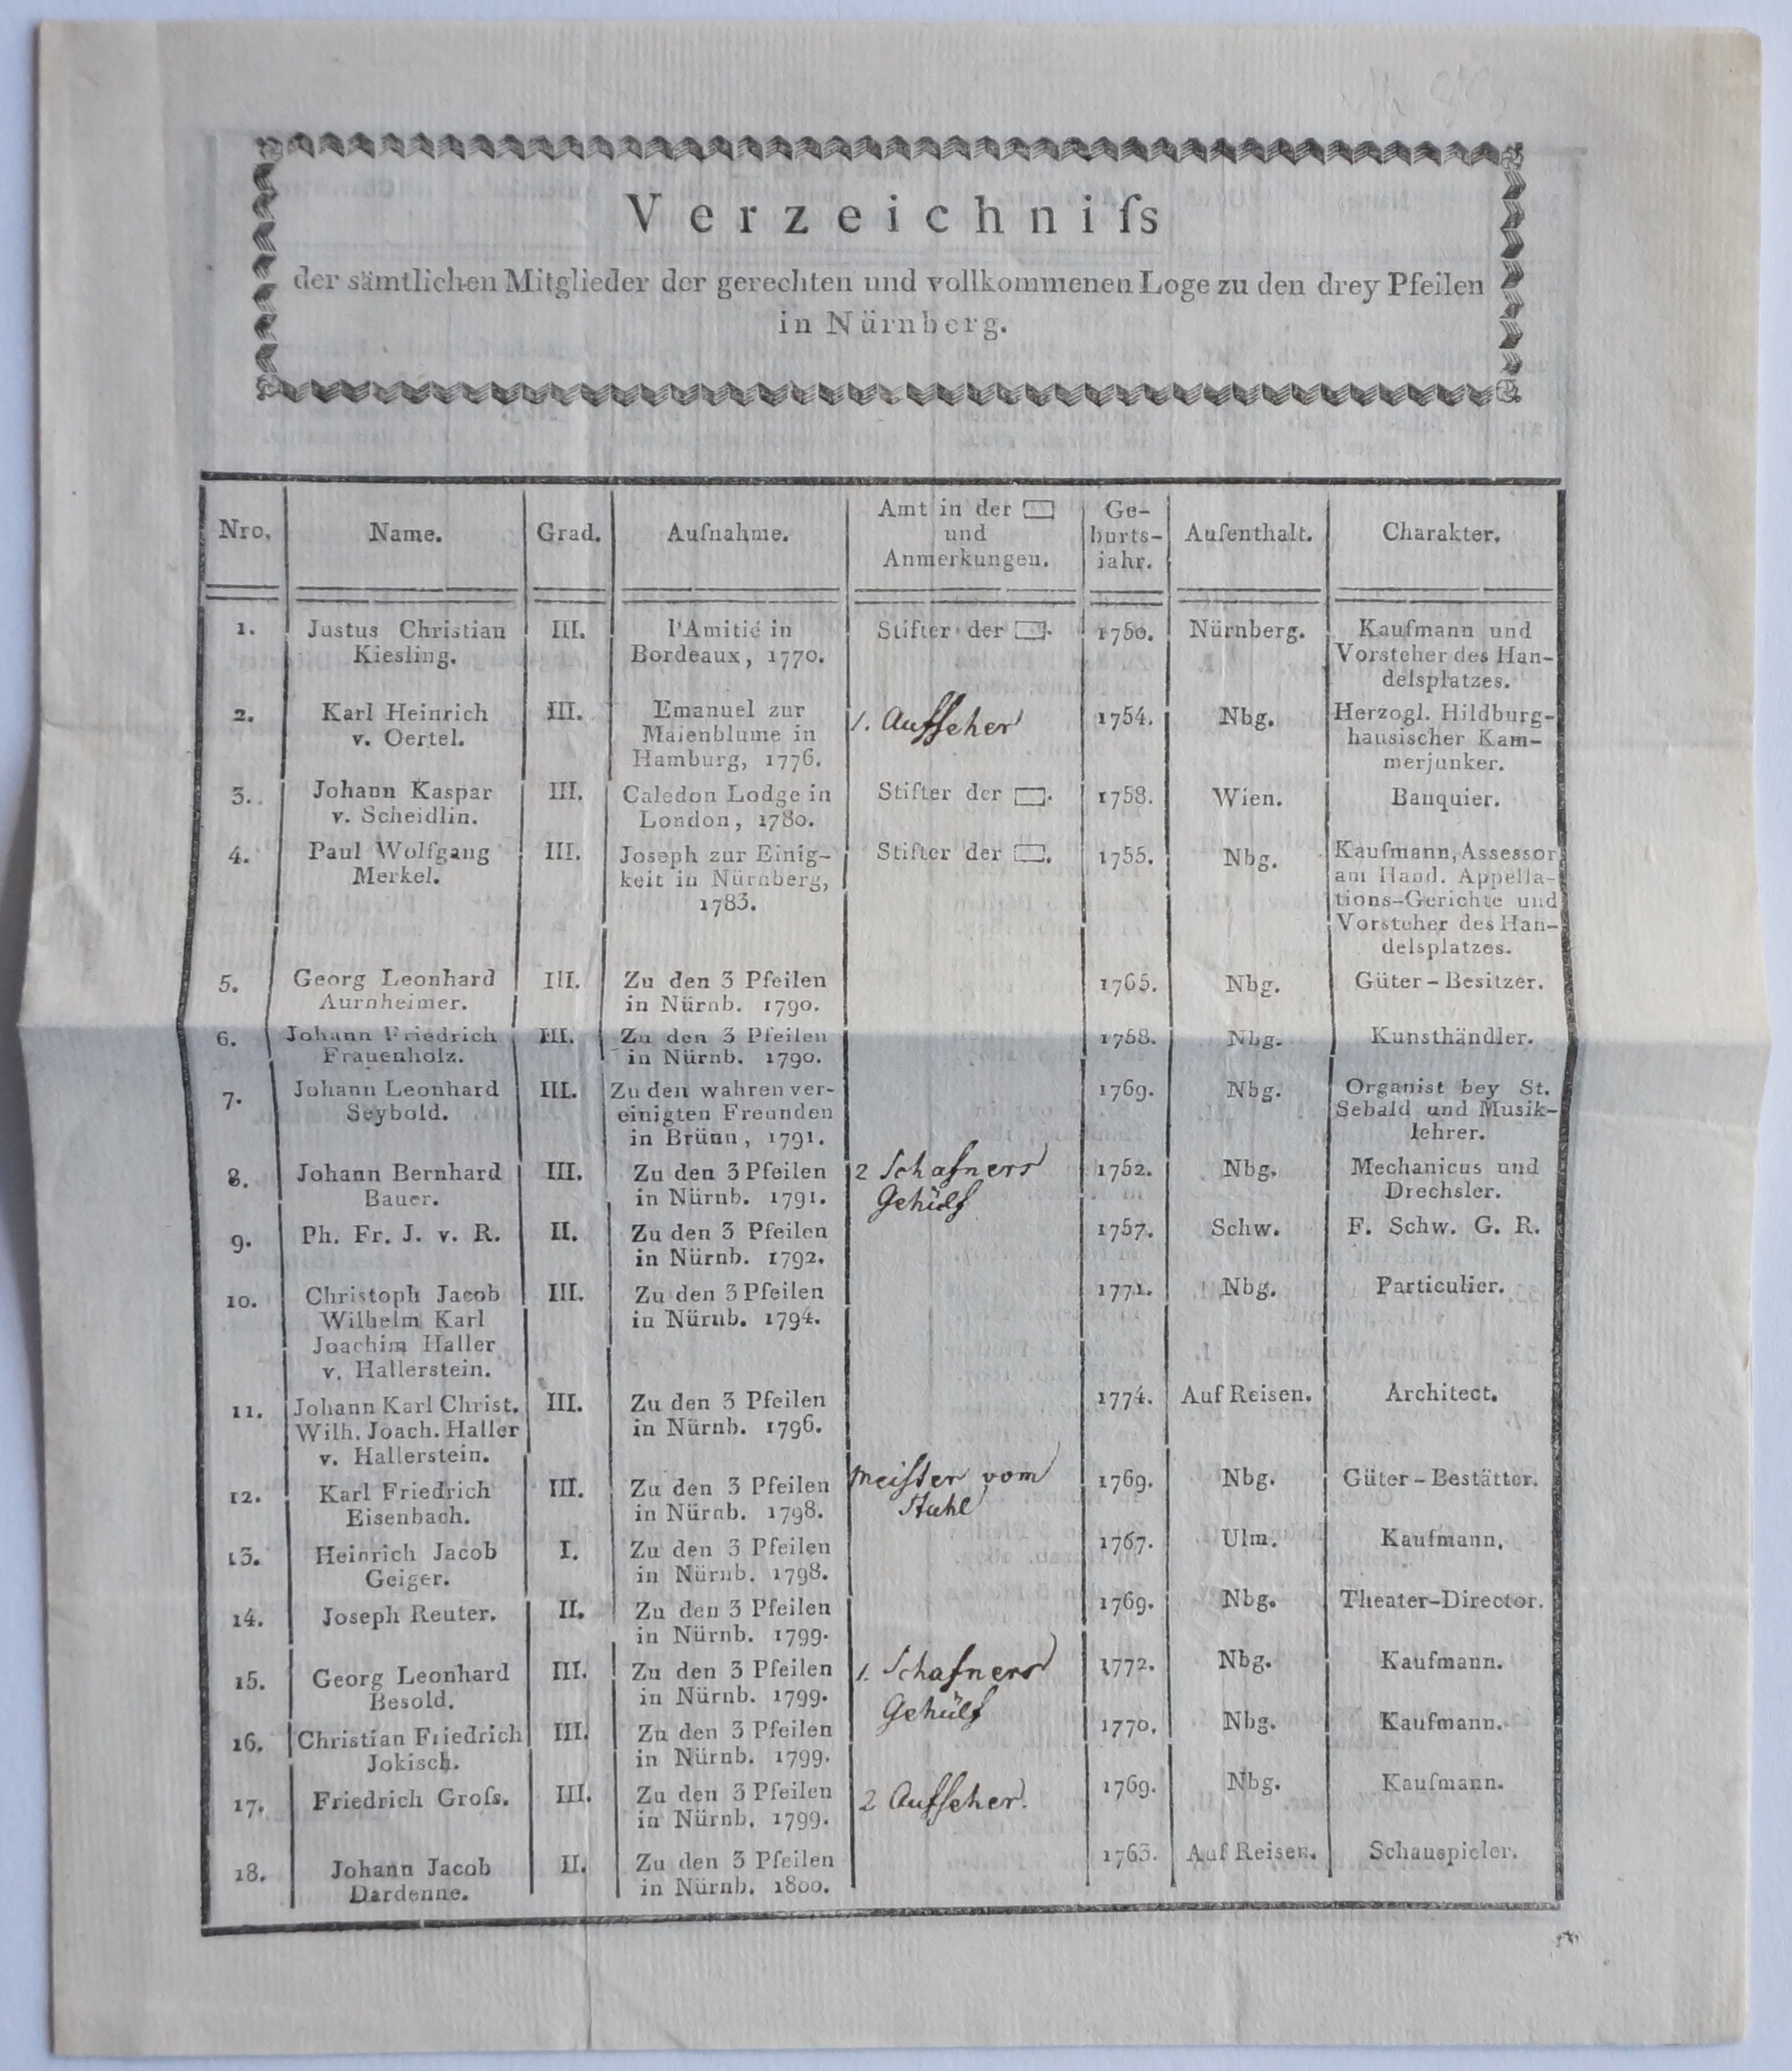 Verzeichniſs
der sämtlichen Mitglieder der gerechten und vollkommenen Loge zu den drey Pfeilen
in Nürnberg.
Nro. Name. Grad. Aufnahme. Amt in der ▭ und Anmerkungen. Ge-burts-jahr. Aufenthalt. Charakter.
1. Justus Christian III. l'Amitié in Stifter der ▭. 1750. Nürnberg. Kaufmann und
Kiesling. Bordeaux, 1770. Vorsteher des Han-
delsplatzes.
2. Karl Heinrich III. Emanuel zur 1. Aufseher 1754. Nbg. Herzogl. Hildburg-
v. Oertel. Maienblume in hausischer Kam-
Hamburg, 1776. merjunker.
3. Johann Kaspar III. Caledon Lodge in Stifter der ▭. 1758. Wien. Banquier.
v. Scheidlin. London, 1780.
4. Paul Wolfgang III. Joseph zur Einig- Stifter der ▭. 1755. Nbg. Kaufmann, Assessor
Merkel. keit in Nürnberg, am Hand. Appella-
1783. tions-Gerichte und
Vorsteher des Han-
delsplatzes.
5. Georg Leonhard III. Zu den 3 Pfeilen 1765. Nbg. Güter-Besitzer.
Aurnheimer. in Nürnb. 1790.
6. Johann Friedrich III. Zu den 3 Pfeilen 1758. Nbg. Kunsthändler.
Frauenholz. in Nürnb. 1790.
7. Johann Leonhard III. Zu den wahren ver- 1769. Nbg. Organist bey St.
Seybold. einigten Freunden Sebald und Musik-
in Brünn, 1791. lehrer.
8. Johann Bernhard III. Zu den 3 Pfeilen 2 Schafners 1752. Nbg. Mechanicus und
Bauer. in Nürnb. 1791. Gehülf Drechsler.
9. Ph. Fr. J. v. R. II. Zu den 3 Pfeilen 1757. Schw. F. Schw. G. R.
in Nürnb. 1792.
10. Christoph Jacob III. Zu den 3 Pfeilen 1771. Nbg. Particulier.
Wilhelm Karl in Nürnb. 1794.
Joachim Haller
v. Hallerstein.
11. Johann Karl Christ. III. Zu den 3 Pfeilen 1774. Auf Reisen. Architect.
Wilh. Joach. Haller in Nürnb. 1796.
v. Hallerstein.
12. Karl Friedrich III. Zu den 3 Pfeilen Meister vom 1769. Nbg. Güter-Bestätter.
Eisenbach. in Nürnb. 1798. Stuhl
13. Heinrich Jacob I. Zu den 3 Pfeilen 1767. Ulm. Kaufmann.
Geiger. in Nürnb. 1798.
14. Joseph Reuter. II. Zu den 3 Pfeilen 1769. Nbg. Theater-Director.
in Nürnb. 1799.
15. Georg Leonhard III. Zu den 3 Pfeilen 1. Schafners 1772. Nbg. Kaufmann.
Besold. in Nürnb. 1799. Gehülf
16. Christian Friedrich III. Zu den 3 Pfeilen 1770. Nbg. Kaufmann.
Jokisch. in Nürnb. 1799.
17. Friedrich Groſs. III. Zu den 3 Pfeilen 2 Aufseher. 1769. Nbg. Kaufmann.
in Nürnb. 1799.
18. Johann Jacob II. Zu den 3 Pfeilen Auf Reisen. Schauspieler.
Dardenne. in Nürnb. 1800.